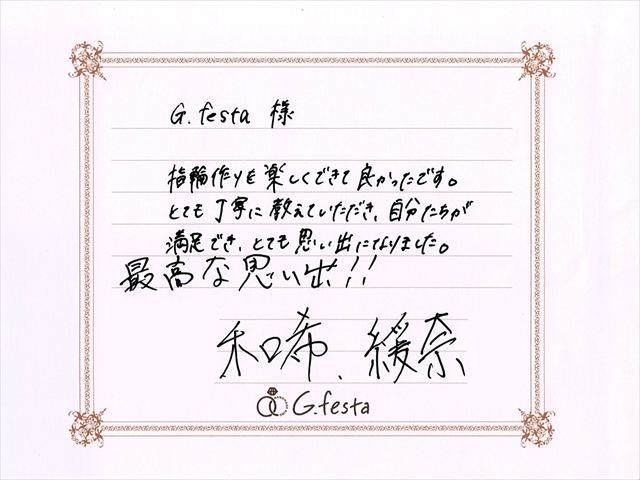 G.festa 様
指輪作りを楽しくできて良かったです。
とても丁寧に教えていただき、自分たちが
満足でき、とても思い出になりました。
最高な思い出!!
和希、綾奈
G.festa